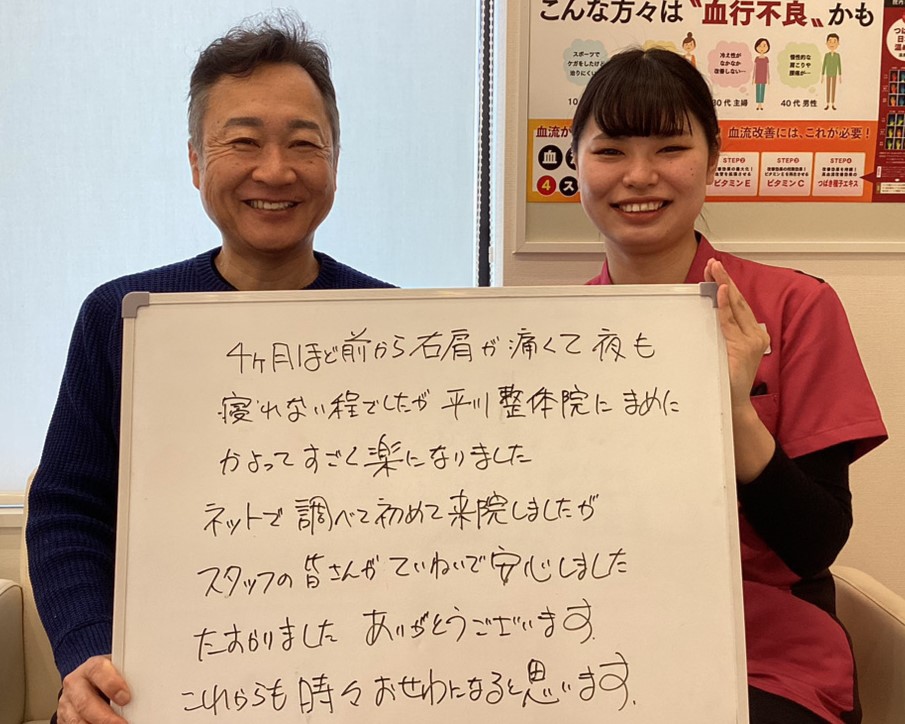 こんな方々は〝血行不良〟かも
スポーツで
ケガをしたけど
冷え性が
なかなか
改善しない…
慢性的な
肩こりや
腰痛が…
10
30代 主婦
40代 男性
血流改善には、これが必要!
血
4
STEP2
ビタミンE
STEP3
ビタミンC
STEP4
つばき種子エキス
4ヶ月ほど前から右肩が痛くて夜も
寝れない程でしたが平川整体院にまめに
かよってすごく楽になりました
ネットで調べて初めて来院しましたが
スタッフの皆さんがていねいで安心しました
たすかりました ありがとうございます.
これからも時々おせわになると思います.